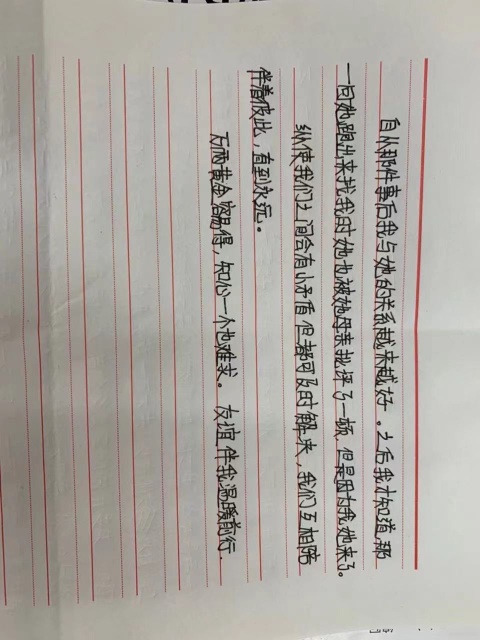 自从那件事后我与她的关系越来越好。之后我才知道那
一回她跑出来找我时她也被她母亲批评了一顿,但是因为我她来了。
纵使我们之间会有小矛盾但都可及时解决,我们互相陪
伴着彼此,直到永远。
万两黄金容易得,知心一个也难求。友谊伴我温暖前行.